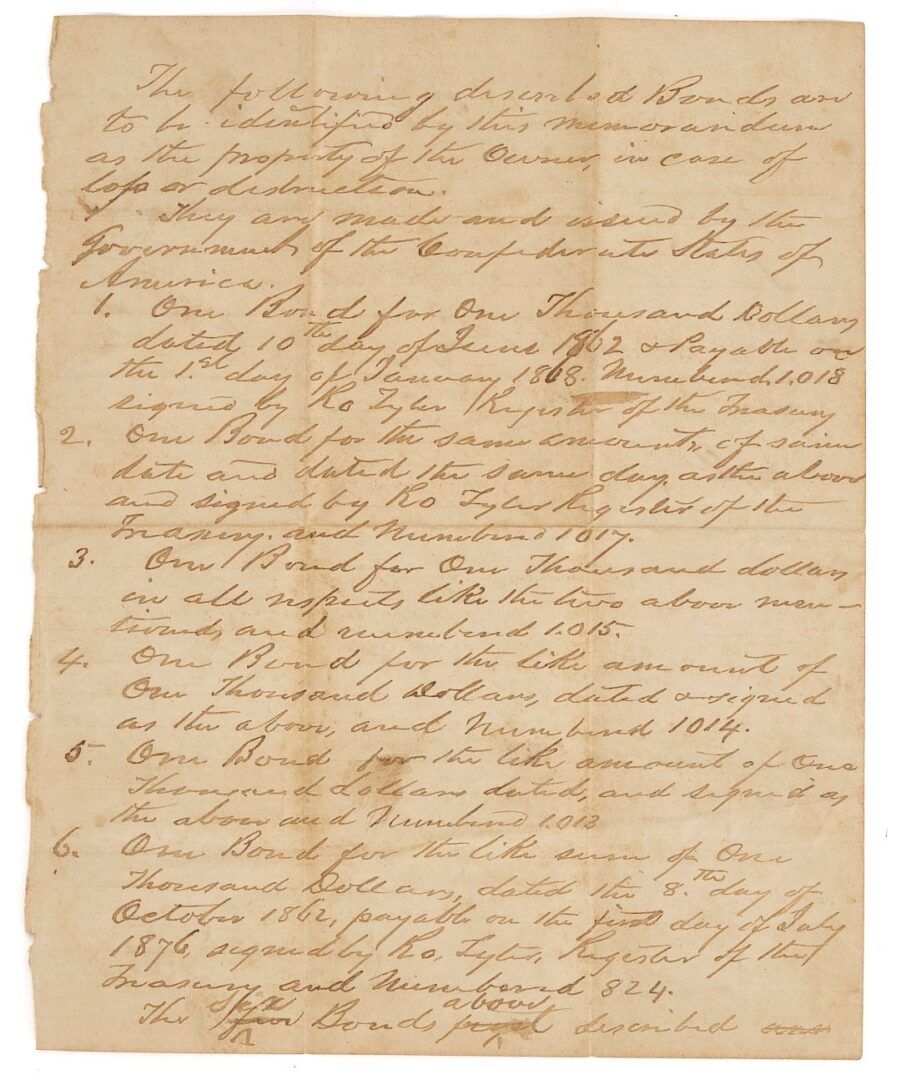 The following described Bonds are
to be identified by this memorandum
as the property of the Owner, in case of
loss or destruction.
They are made and issued by the
Government of the Confederate States of
America.
1. One Bond for One Thousand Dollars
dated 10th day of June 1862 & Payable on
the 1.st day of January 1868. Numbered 1.018
signed by Ro Tyler Register of the Treasury
2. One Bond for the same amount, of same
date and dated the same day, as the above
and signed by Ro Tyler Register of the
Treasury. and Numbered 1017.
3. One Bond for One Thousand dollars
in all respects like the two above men-
tioned, and numbered 1.015.
4. One Bond for the like amount of
One Thousand Dollars, dated & signed
as the above, and Numbered 1014.
5. One Bond for the like amount of One
Thousand dollars dated, and signed as
the above and Numbered 1.013
6. One Bond for the like sum of One
Thousand Dollars, dated the 8.th day of
October 1862, payable on the first day of July
1876, signed by Ro, Tyler, Register of the
Treasury and Numbered 824.
The six five Bonds above described are